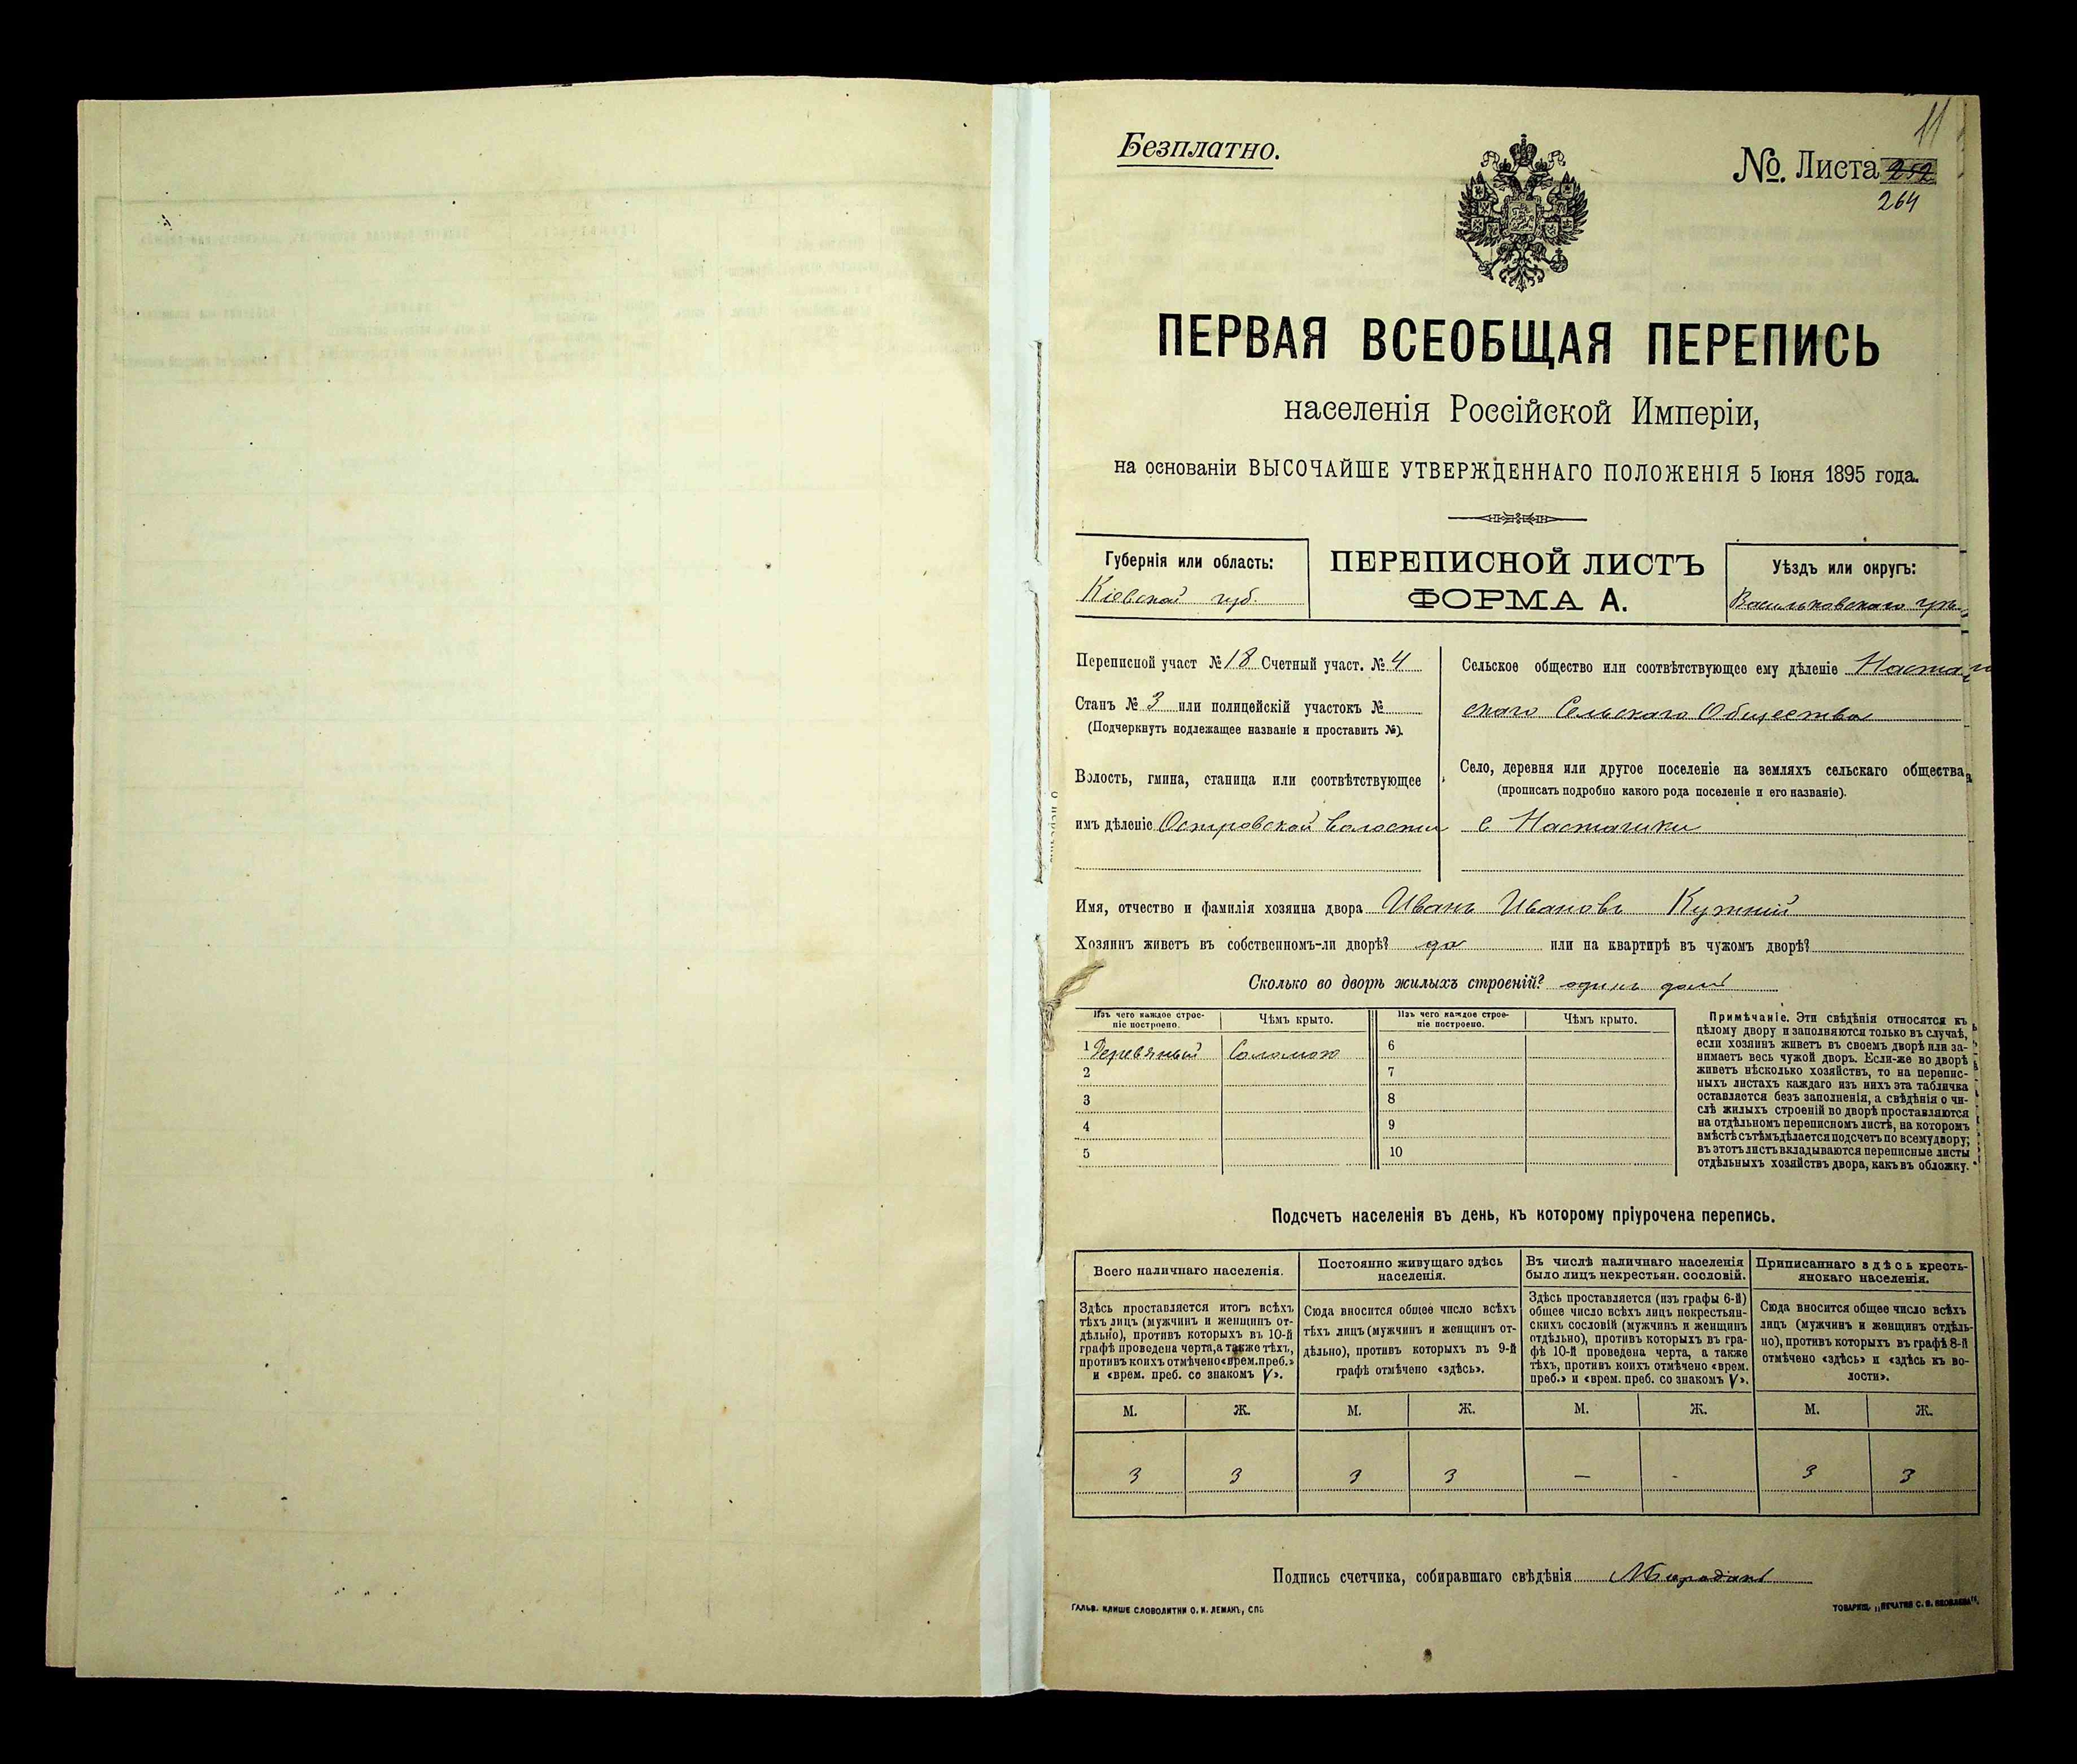 11
Безплатно.
№. Листа 252
264
ПЕРВАЯ ВСЕОБЩАЯ ПЕРЕПИСЬ
населенія Россійской Имперіи,
на основаніи ВЫСОЧАЙШЕ УТВЕРЖДЕННАГО ПОЛОЖЕНІЯ 5 Іюня 1895 года.
Губернія или область:
Кіевской губ.
ПЕРЕПИСНОЙ ЛИСТЪ
ФОРМА А.
Уѣздъ или округъ:
Васильковскаго
Переписной участ №18 Счетный участ. №4
Станъ № 3 или полицейскій участокъ №
(Подчеркнуть подлежащее названіе и проставить №).
Волость, гмина, станица или соотвѣтствующее
имъ дѣленіе Островской волости
Сельское общество или соотвѣтствующее ему дѣленіе
скаго Сельскаго Общества
Село, деревня или другое поселеніе на земляхъ сельскаго общества
(прописать подробно какого рода поселеніе и его названіе).
с Насташки
Имя, отчество и фамилія хозяина двора Иванъ Ивановъ
Хозяинъ живетъ въ собственномъ-ли дворѣ? да или на квартирѣ въ чужомъ дворѣ?
Сколько во дворѣ жилыхъ строеній? одинъ домъ
Изъ чего каждое строе-
ніе построено.
Чѣмъ крыто.
Изъ чего каждое строе-
ніе построено.
Чѣмъ крыто.
1 Деревяный Соломою 6
2 7
3 8
4 9
5 10
Примѣчаніе. Эти свѣдѣнія относятся къ
цѣлому двору и заполняются только въ случаѣ,
если хозяинъ живетъ въ своемъ дворѣ или за-
нимаетъ весь чужой дворъ. Если-же во дворѣ
живетъ нѣсколько хозяйствъ, то на перепис-
ныхъ листахъ каждаго изъ нихъ эта табличка
оставляется безъ заполненія, а свѣдѣнія о чи-
слѣ жилыхъ строеній во дворѣ проставляются
на отдѣльномъ переписномъ листѣ, на которомъ
вмѣстѣ съ тѣмъ дѣлается подсчетъ по всему двору;
въ этотъ листъ вкладываются переписные листы
отдѣльныхъ хозяйствъ двора, какъ въ обложку.
Подсчетъ населенія въ день, къ которому пріурочена перепись.
Всего наличнаго населенія.
Здѣсь проставляется итогъ всѣхъ
тѣхъ лицъ (мужчинъ и женщинъ от-
дѣльно), противъ которыхъ въ 10-й
графѣ проведена черта, а также тѣхъ,
противъ коихъ отмѣчено «врем. преб.»
и «врем. преб. со знакомъ V».
Постоянно живущаго здѣсь
населенія.
Сюда вносится общее число всѣхъ
тѣхъ лицъ (мужчинъ и женщинъ от-
дѣльно), противъ которыхъ въ 9-й
графѣ отмѣчено «здѣсь».
Въ числѣ наличнаго населенія
было лицъ некрестьян. сословій.
Здѣсь проставляется (изъ графы 6-й)
общее число всѣхъ лицъ некрестьян-
скихъ сословій (мужчинъ и женщинъ
отдѣльно), противъ которыхъ въ гра-
фѣ 10-й проведена черта, а также
тѣхъ, противъ коихъ отмѣчено «врем.
преб.» и «врем. преб. со знакомъ V».
Приписаннаго здѣсь кресть-
янскаго населенія.
Сюда вносится общее число всѣхъ
лицъ (мужчинъ и женщинъ отдѣль-
но), противъ которыхъ въ графѣ 8-й
отмѣчено «здѣсь» и «здѣсь къ во-
лости».
М. Ж. М. Ж. М. Ж. М. Ж.
3 3 3 3 — - 3 3
Подпись счетчика, собиравшаго свѣдѣнія
ГАЛЬВ. КЛИШЕ СЛОВОЛИТНИ О. И. ЛЕМАНЪ, СПБ
ТОВАРИЩ. „ПЕЧАТНЯ С. П. ЯКОВЛЕВА“.